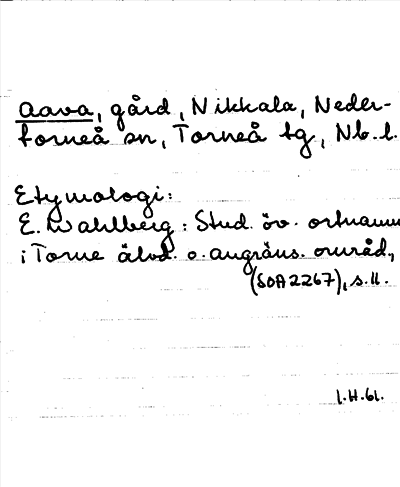 Aava, gård, Nikkala, Neder-
torneå sn, Torneå tg, Nb. l.
Etymologi:
E. Wahlberg: Stud. öv. ortnamn
i Torne älvd. o. angräns. områd.,
(SOA 2267), s. 11.
I.H. 61.